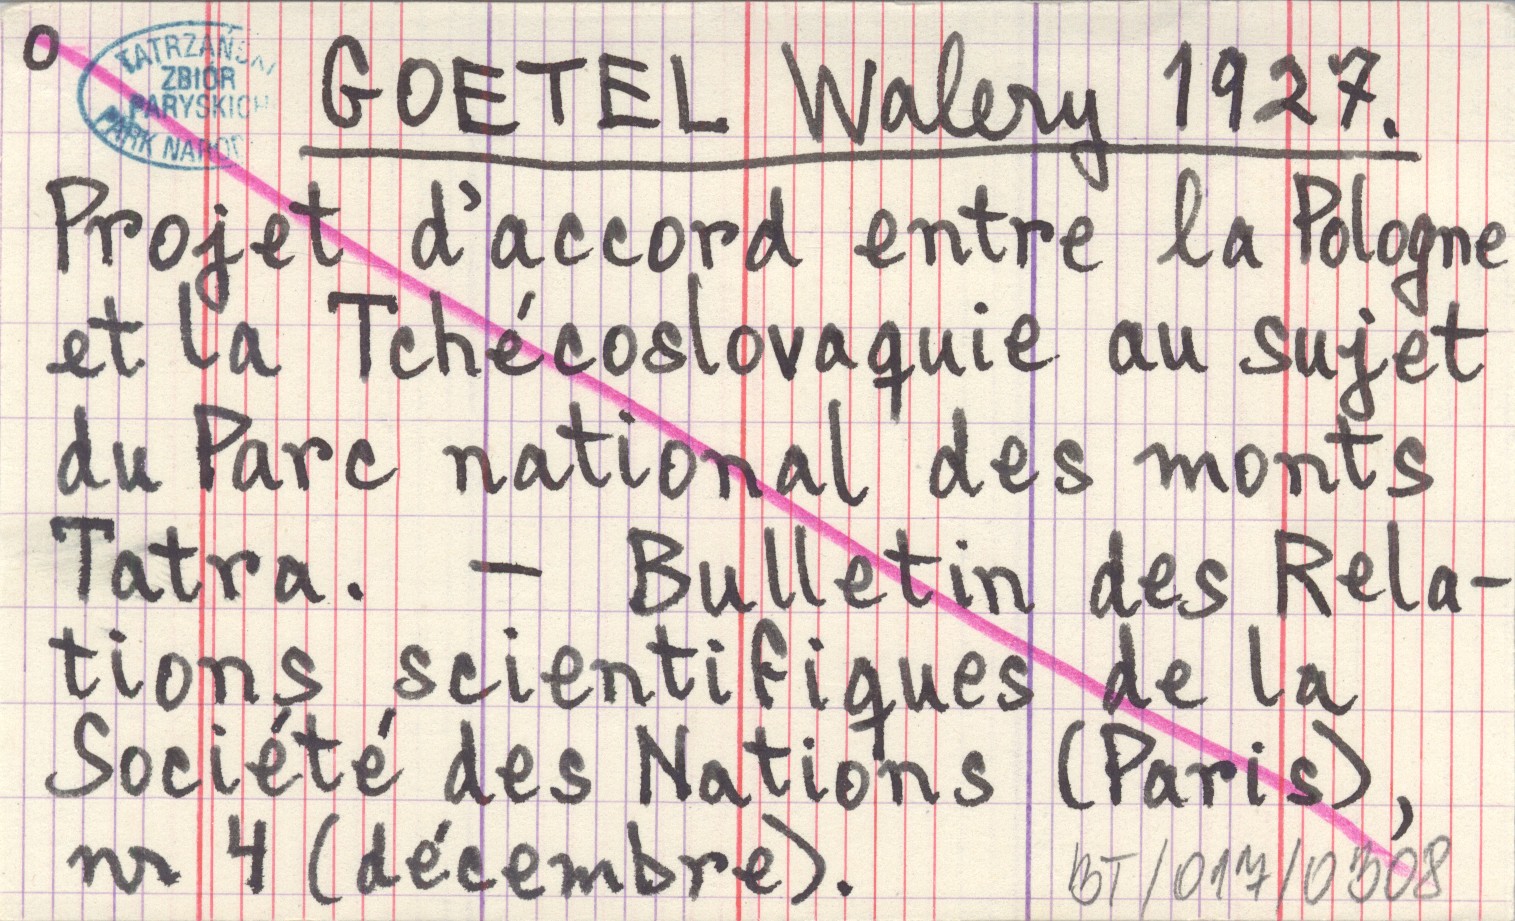 O
TATRZAŃSKI
ZBIÓR
PARYSKICH
PARK NAROD
GOETEL Walery 1927.
Projet d'accord entre la Pologne
et la Tchécoslovaquie au sujet
du Parc national des monts
Tatra. – Bulletin des Rela-
tions scientifiques de la
Société des Nations (Paris),
nr 4 (décembre).
BT/017/0308